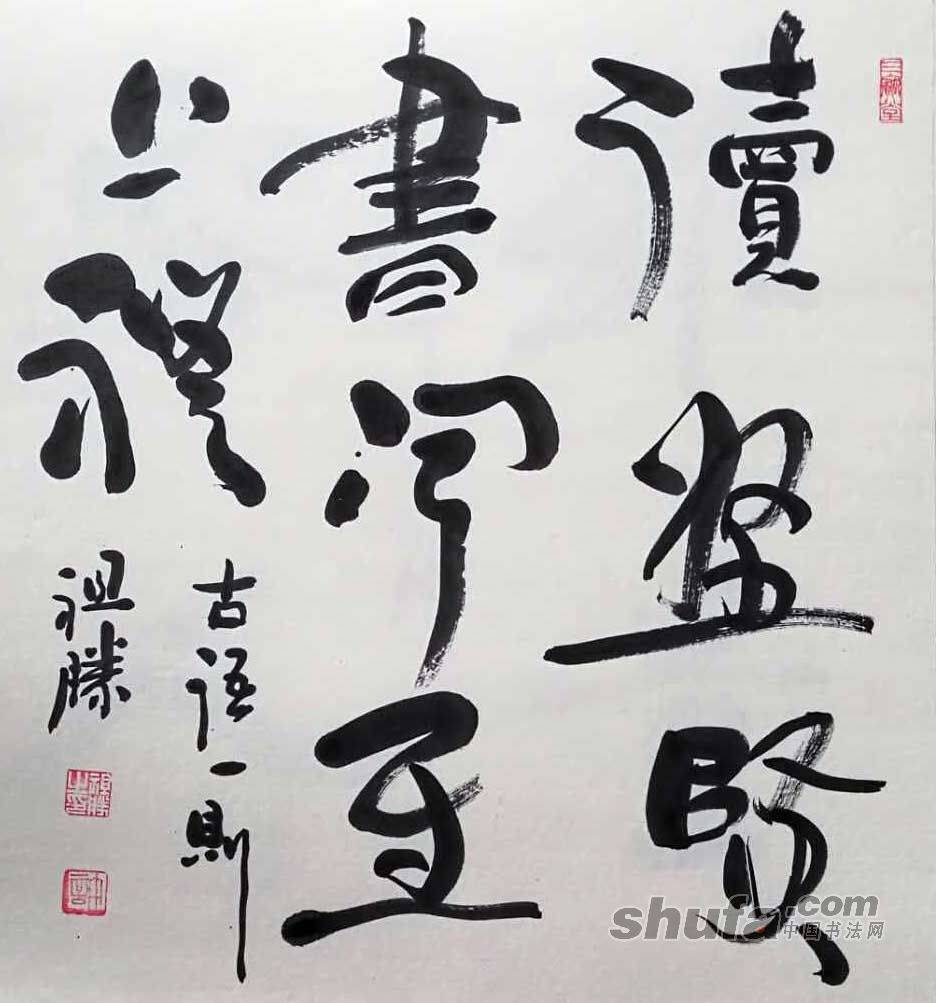 讀聖賢
書聞至
上禮
古語一則
祖勝
shufa.com
中国书法网